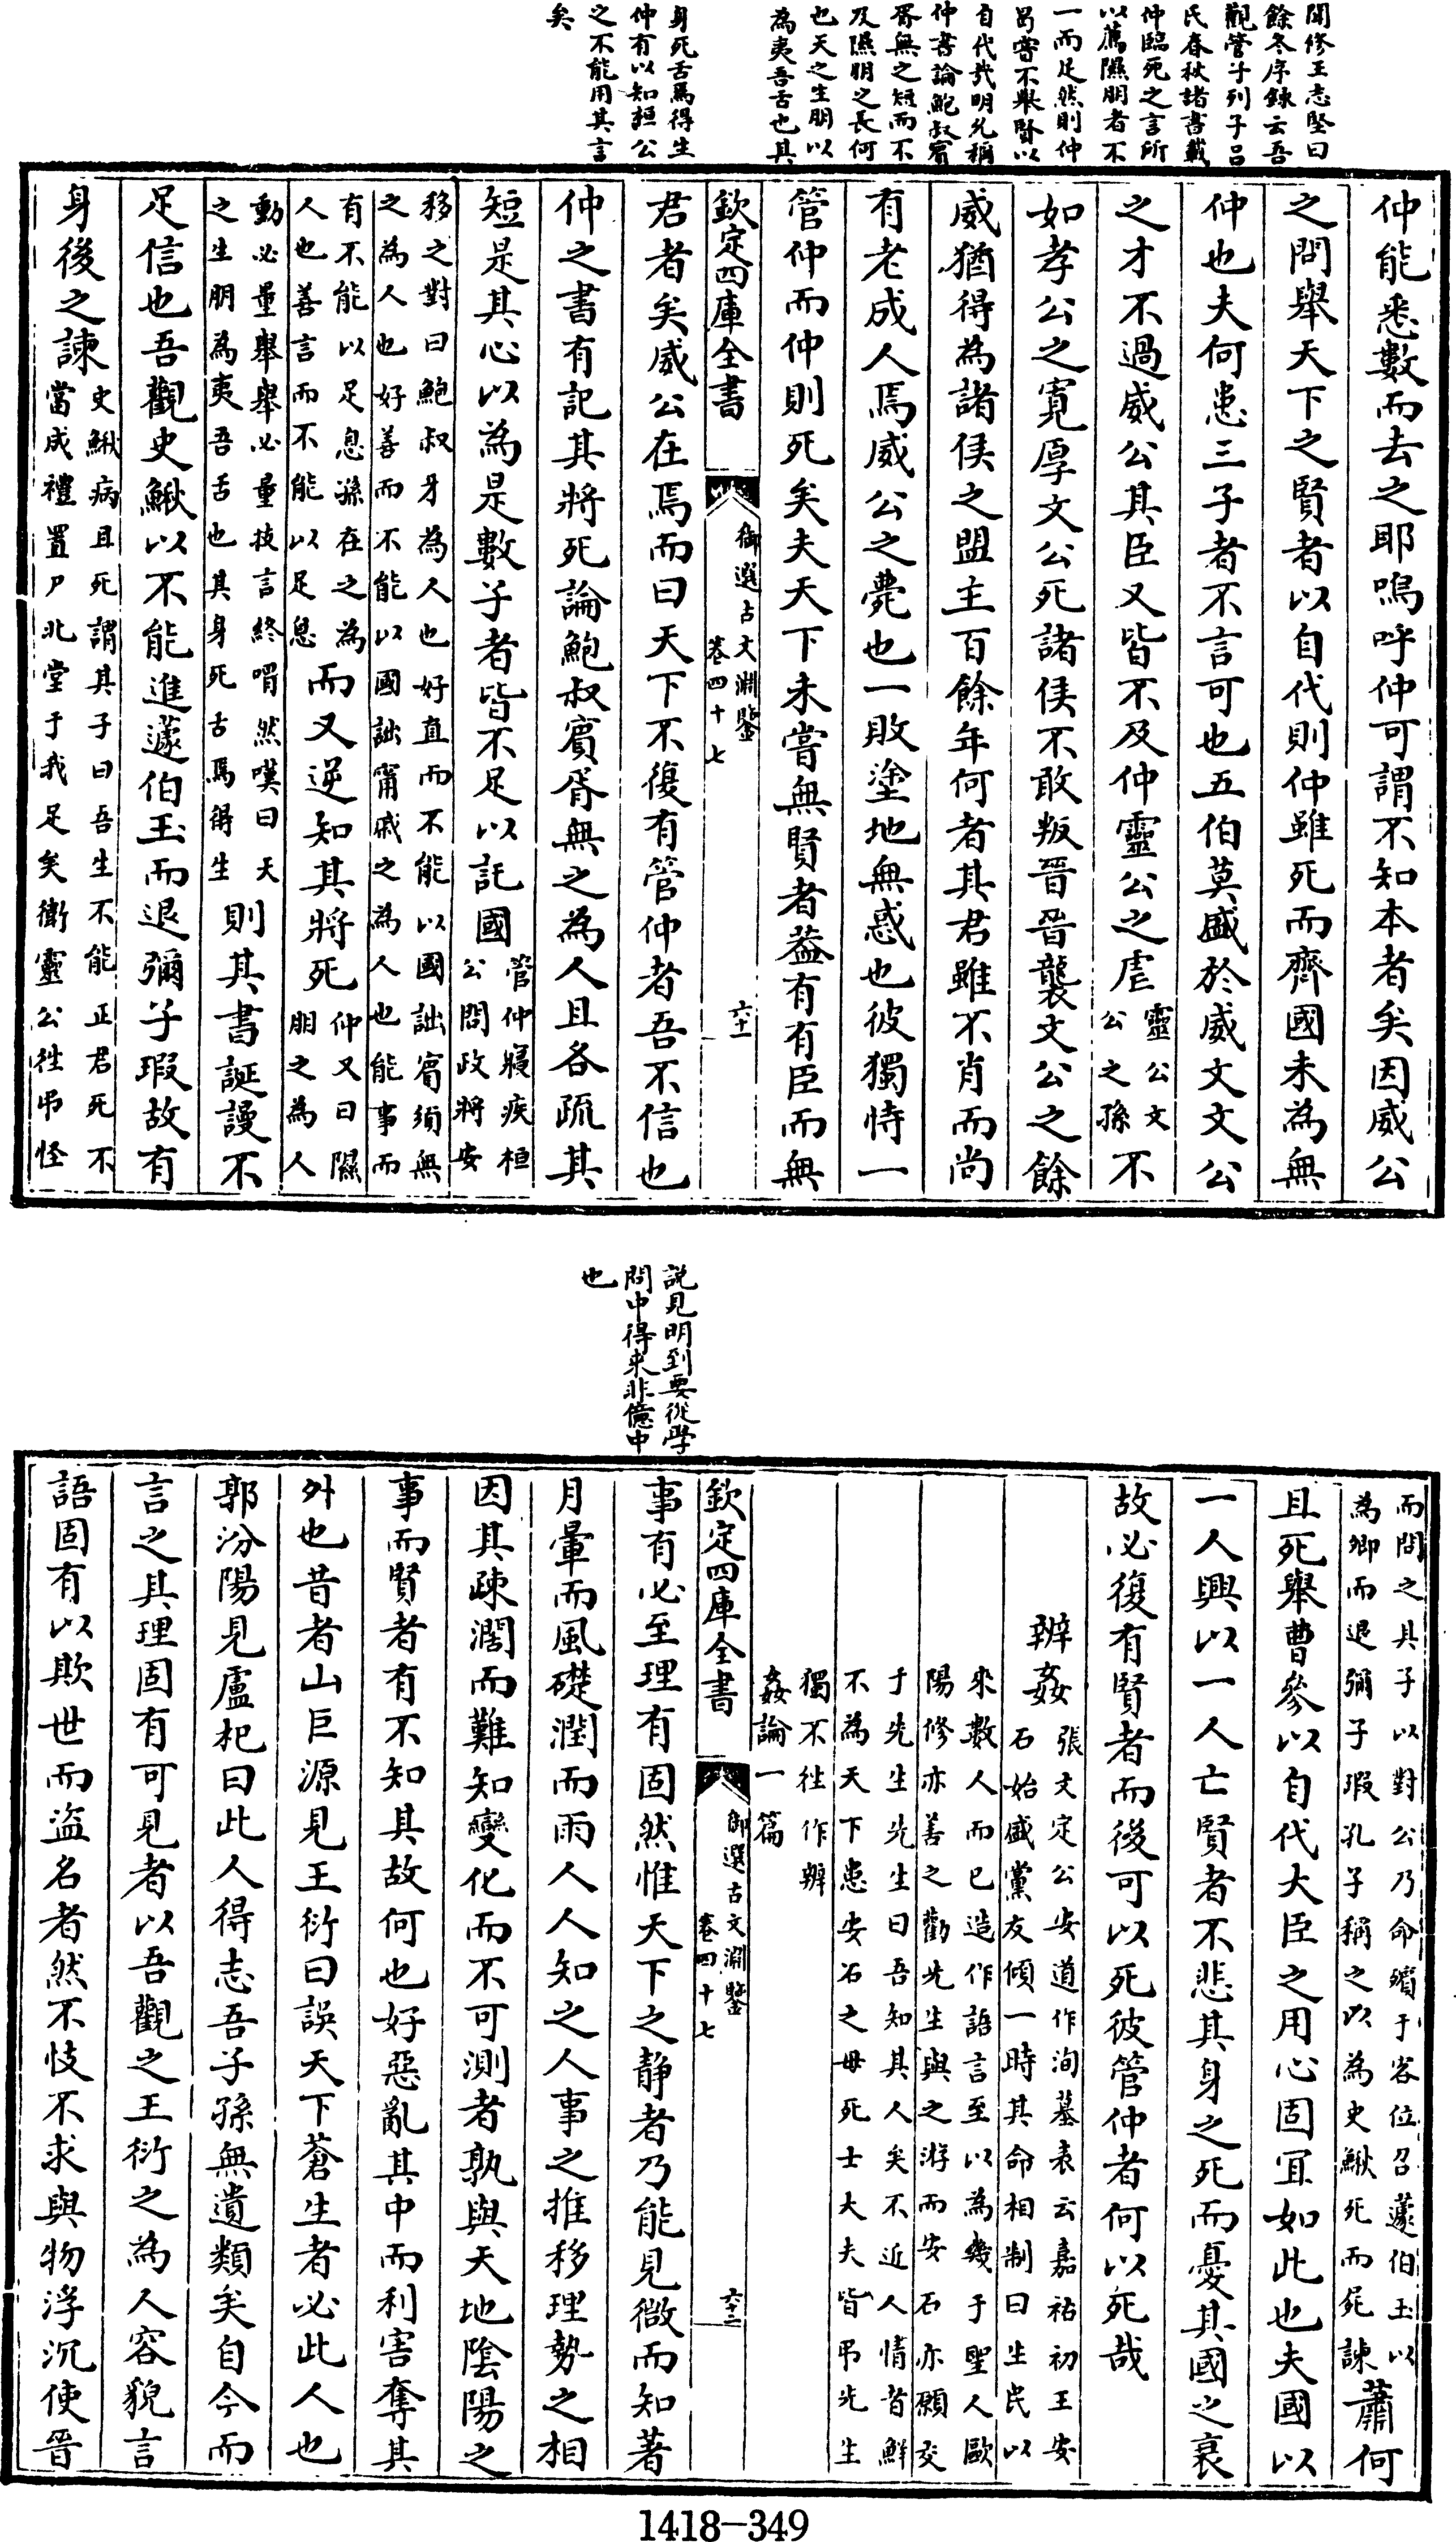 聞修王志堅曰
餘冬序録云吾
觀管子列子吕
氏春秋諸書載
仲臨死之言所
以薦隰朋者不
一而足然則仲
曷嘗不舉賢以
自代哉明允稱
仲書論鮑叔賓
胥無之短而不
及隰朋之長何
也天之生朋以
為夷吾舌也其
身死舌焉得生
仲有以知桓公
之不能用其言
矣
仲能悉數而去之耶嗚呼仲可謂不知本者矣因威公
之問舉天下之賢者以自代則仲雖死而齊國未為無
仲也夫何患三子者不言可也五伯莫盛於威文文公
之才不過威公其臣又皆不及仲靈公之虐靈公文公之孫不
如孝公之寛厚文公死諸侯不敢叛晉晉襲文公之餘
威猶得為諸侯之盟主百餘年何者其君雖不肖而尚
有老成人焉威公之薨也一敗塗地無惑也彼獨恃一
管仲而仲則死矣夫天下未嘗無賢者葢有有臣而無
欽定四庫全書 御選古文淵鑒 卷四十七 六十一
君者矣威公在焉而曰天下不復有管仲者吾不信也
仲之書有記其將死論鮑叔賓胥無之為人且各疏其
短是其心以為是數子者皆不足以託國管仲寢疾桓公問政將安
移之對曰鮑叔牙為人也好直而不能以國詘賓須無
之為人也好善而不能以國詘甯戚之為人也能事而
有不能以足息孫在之為人也善言而不能以足息而又逆知其將死仲又曰隰朋之為人
動必量舉舉必量技言終喟然嘆曰天之生朋為夷吾舌也其身死舌焉得生則其書誕謾不
足信也吾觀史鰌以不能進蘧伯玉而退彌子瑕故有
身後之諫史鰌病且死謂其子曰吾生不能正君死不當成禮置尸北堂于我足矣衛靈公往弔怪
說見明到要從學
問中得來非億中
也
而問之其子以對公乃命殯于客位召蘧伯玉以為卿而退彌子瑕孔子稱之以為史鰌死而屍諫蕭何
且死舉曹參以自代大臣之用心固宜如此也夫國以
一人興以一人亡賢者不悲其身之死而憂其國之衰
故必復有賢者而後可以死彼管仲者何以死哉
辨姦張文定公安道作洵墓表云嘉祐初王安石始盛黨友傾一時其命相制曰生民以
來數人而已造作語言至以為幾于聖人歐陽修亦善之勸先生與之游而安石亦願交
于先生先生曰吾知其人矣不近人情者鮮不為天下患安石之母死士大夫皆弔先生
獨不往作辨姦論一篇
欽定四庫全書 御選古文淵鑒 卷四十七 六十二
事有必至理有固然惟天下之静者乃能見微而知著
月暈而風礎潤而雨人人知之人事之推移理勢之相
因其疎濶而難知變化而不可測者孰與天地陰陽之
事而賢者有不知其故何也好惡亂其中而利害奪其
外也昔者山巨源見王衍曰誤天下蒼生者必此人也
郭汾陽見盧杞曰此人得志吾子孫無遺類矣自今而
言之其理固有可見者以吾觀之王衍之為人容貌言
語固有以欺世而盜名者然不忮不求與物浮沉使晉
1418-349